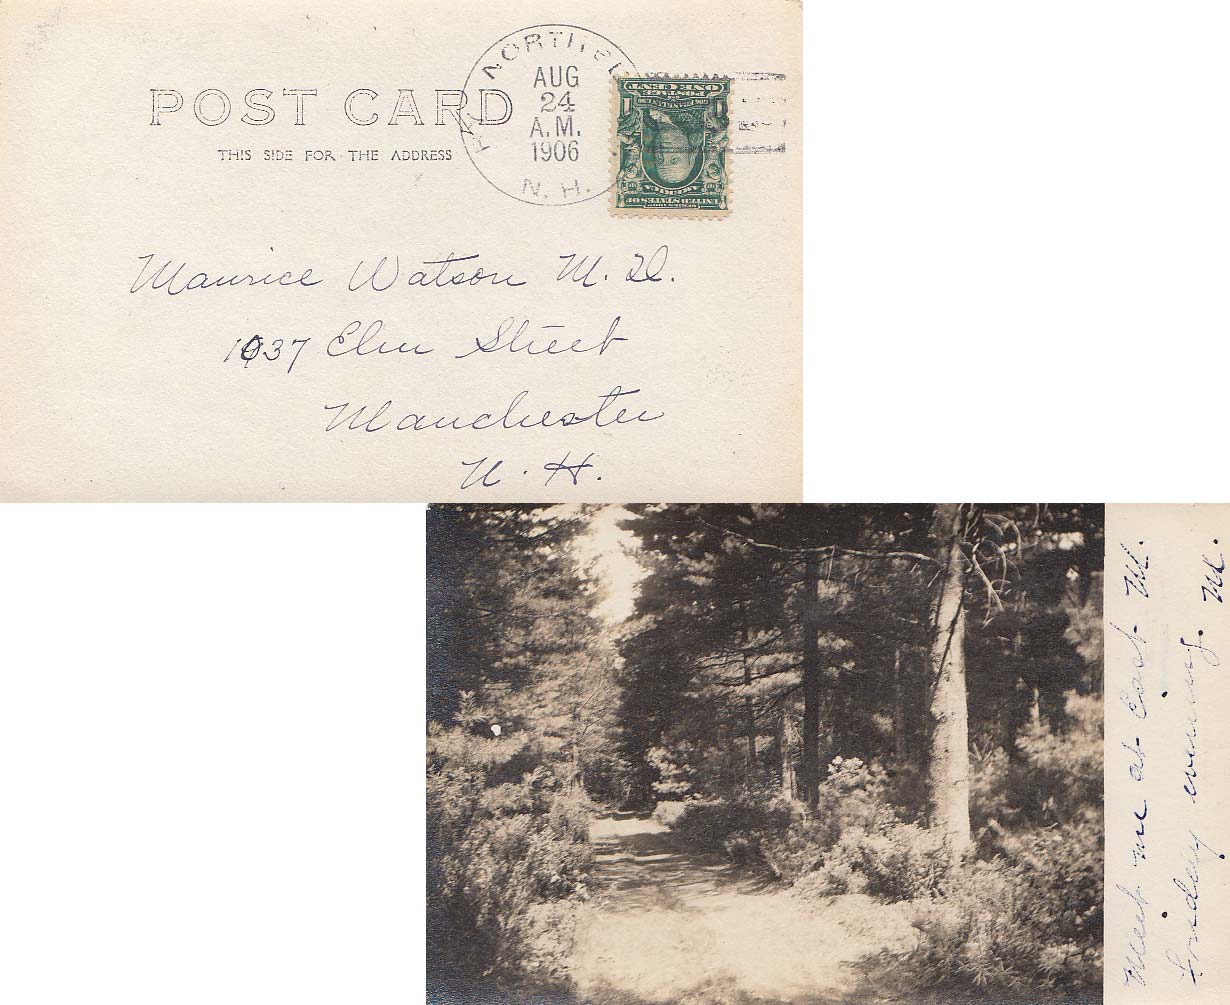 POST CARD
THIS SIDE FOR THE ADDRESS
AUG
24
A.M.
1906
N. H.
ONE CENT
POSTAGE
1 1
UNITED STATES OF
AMERICA
Maurice Watson M. D.
1037 Elm Street
Manchester
N. H.
Meet me at East M.
evening. M.